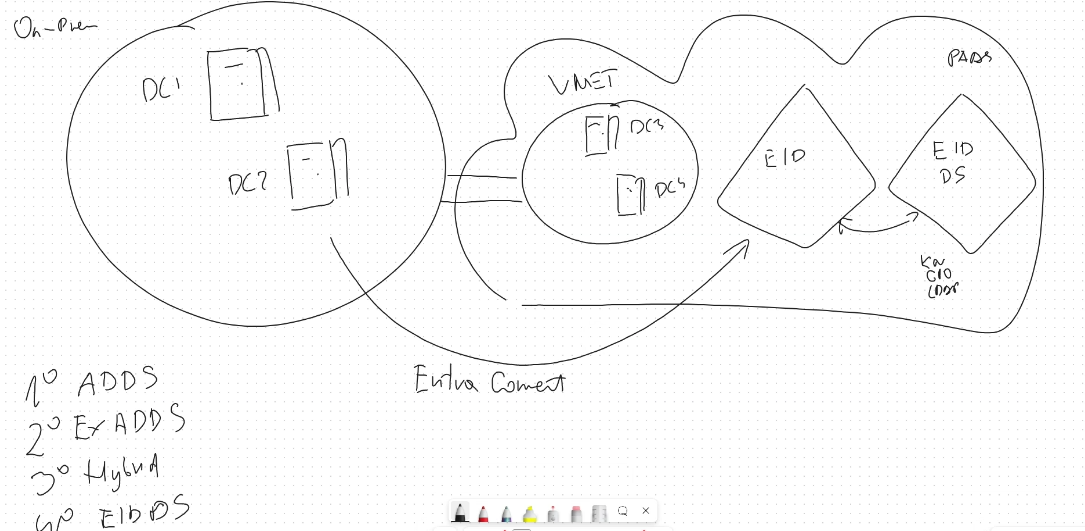 On-Prem
DC1
DC2
VNET
DC3
DC4
EID
PADS
EID
DS
GPO
LDAP
Entra Connect
1º ADDS
2º Ex ADDS
3º Hybrid
4º EIDDS